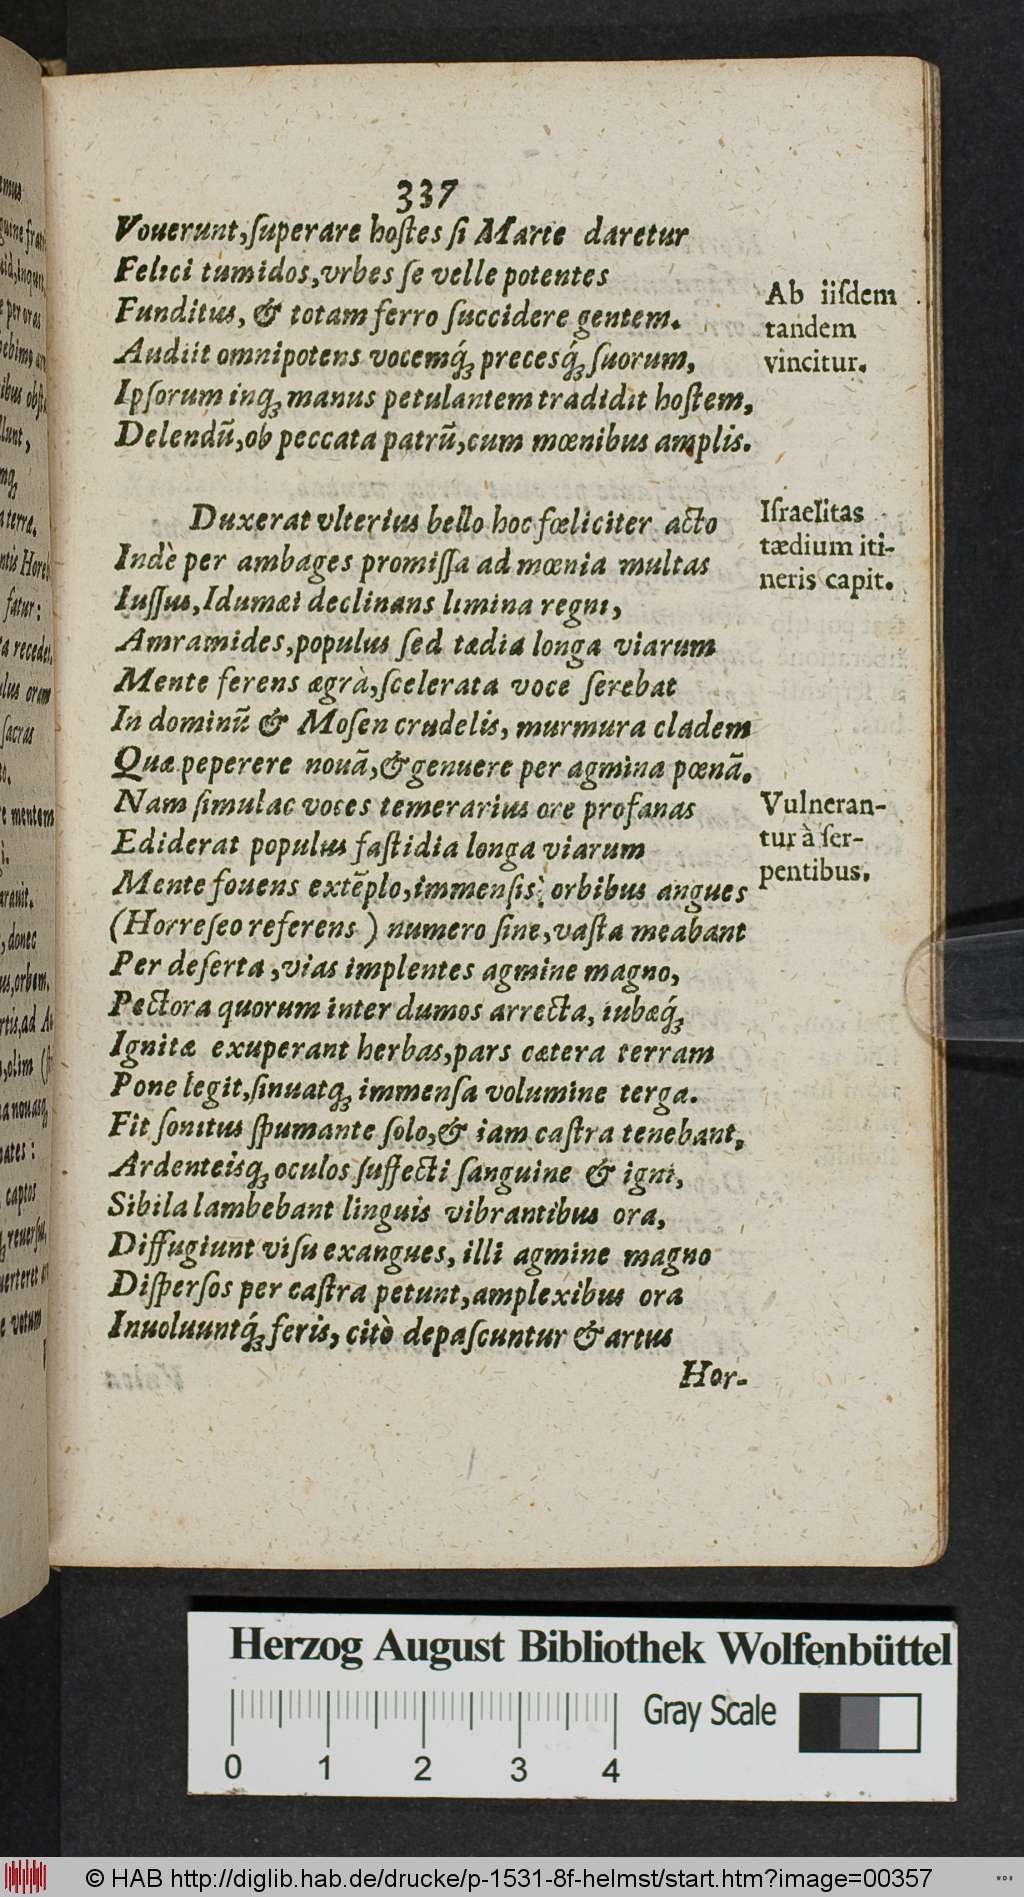 337
Vouerunt, ſuperare hoſtes ſi Marte daretur
Felici tumidos, vrbes ſe velle potentes
Funditus, & totam ferro ſuccidere gentem.
Ab iiſdem
tandem
vincitur.
Audiit omnipotens vocemq́ꝫ precesq́ꝫ ſuorum,
Ipſorum inqꝫ manus petulantem tradidit hoſtem,
Delendũ, ob peccata patrũ, cum mœnibus amplis.
Duxerat vlterius bello hoc fœliciter acto
Iſraelitas
tædium iti-
neris capit.
Indè per ambages promiſſa ad mœnia multas
Iuſſus, Idumæi declinans limina regni,
Amramides, populus ſed tædia longa viarum
Mente ferens ægrà, ſcelerata voce ſerebat
In dominũ & Moſen crudelis, murmura cladem
Quæ peperere nouã, & genuere per agmina pœnã.
Nam ſimulac voces temerarius ore profanas
Vulneran-
tur à ſer-
pentibus.
Ediderat populus faſtidia longa viarum
Mente fouens extẽplo, immenſis orbibus angues
(Horreſeo referens) numero ſine, vaſta meabant
Per deſerta, vias implentes agmine magno,
Pectora quorum inter dumos arrecta, iubæq́ꝫ
Ignitæ exuperant herbas, pars cætera terram
Pone legit, ſinuatqꝫ immenſa volumine terga.
Fit ſonitus ſpumante ſolo, & iam caſtra tenebant,
Ardenteisqꝫ oculos ſuffecti ſanguine & igni,
Sibila lambebant linguis vibrantibus ora,
Diffugiunt viſu exangues, illi agmine magno
Diſperſos per caſtra petunt, amplexibus ora
Inuoluuntq́ꝫ feris, citò depaſcuntur & artus
Hor-
Herzog August Bibliothek Wolfenbüttel
Gray Scale
0 1 2 3 4
© HAB http://diglib.hab.de/drucke/p-1531-8f-helmst/start.htm?image=00357